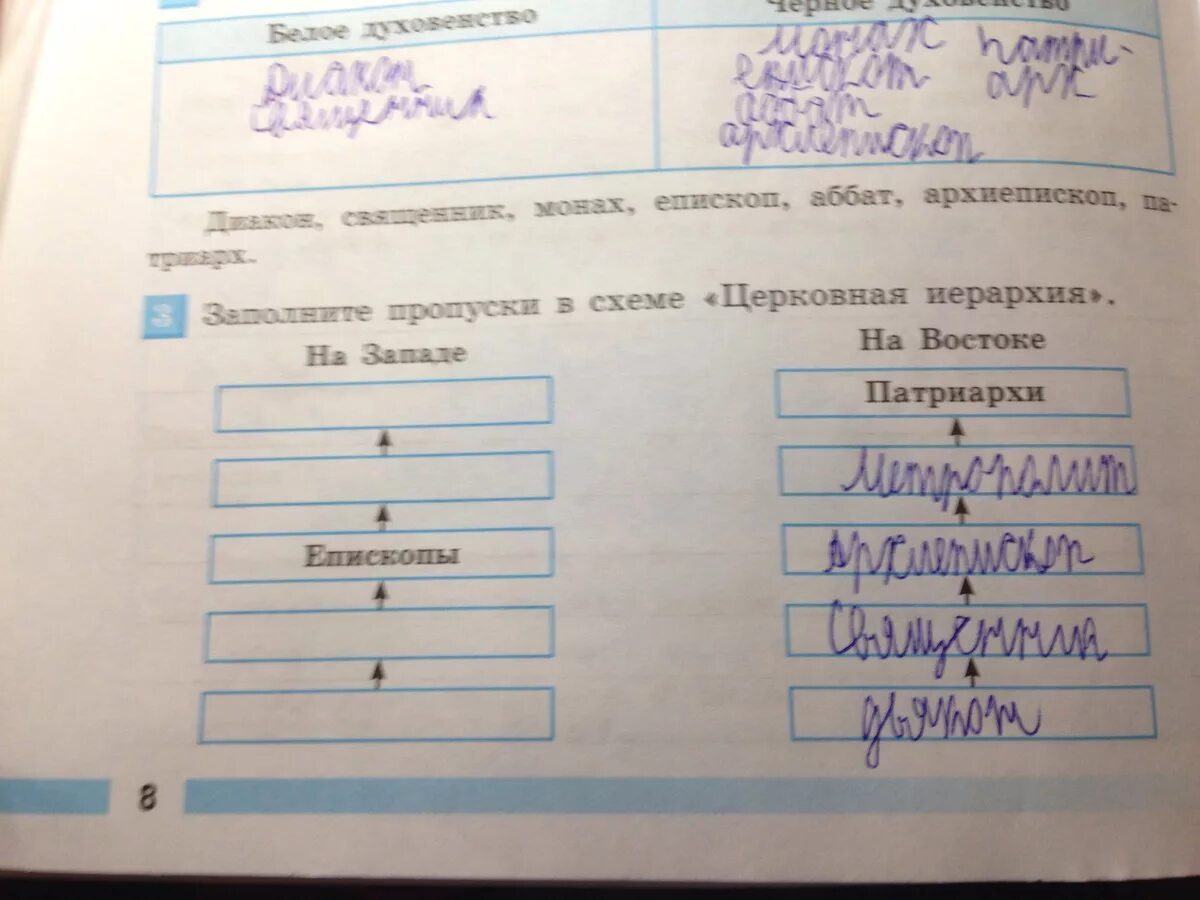 Белое духовенство
Черное духовенство
диакон
священник
монах патри-
епископ арх
аббат
архиепископ
Диакон, священник, монах, епископ, аббат, архиепископ, па-
триарх.
3 Заполните пропуски в схеме «Церковная иерархия».
На Западе
На Востоке
Патриархи
Метрополит
Епископы
архиепископ
Священник
дьякон
8